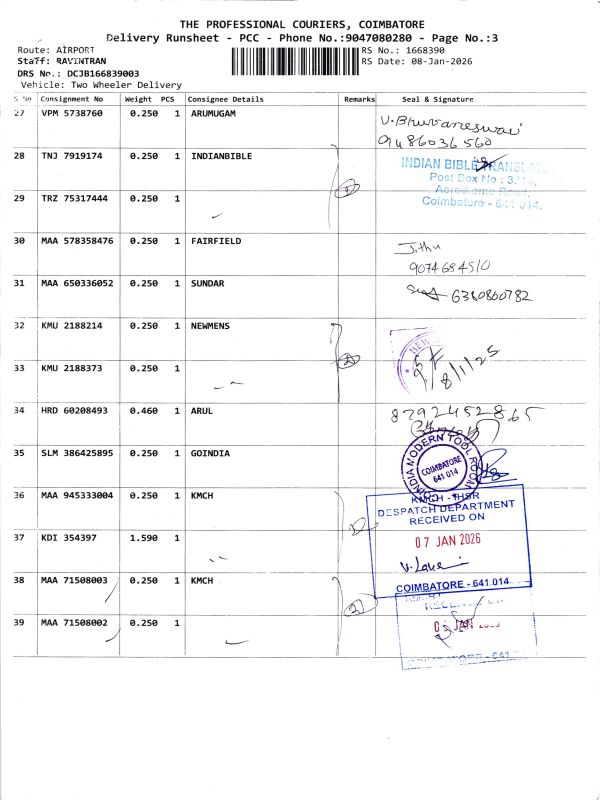 THE PROFESSIONAL COURIERS, COIMBATORE
Delivery Runsheet - PCC - Phone No.:9047080280 - Page No.:3
Route: AIRPORT RS No.: 1668390
Staff: RAVINTRAN RS Date: 08-Jan-2026
DRS No.: DCJB166839003
Vehicle: Two Wheeler Delivery
S No Consignment No Weight PCS Consignee Details Remarks Seal & Signature
27 VPM 5738760 0.250 1 ARUMUGAM
V. Bhuvaneswari
9486036560
28 TNJ 7919174 0.250 1 INDIANBIBLE 2
INDIAN BIBLE TRANSLA
Post Box No : 3210,
Aerodrome Road,
Coimbatore - 641 014.
29 TRZ 75317444 0.250 1
30 MAA 578358476 0.250 1 FAIRFIELD
Jithu
9074684510
31 MAA 650336052 0.250 1 SUNDAR
6380860782
32 KMU 2188214 0.250 1 NEWMENS 2
NEW
8/1/25
33 KMU 2188373 0.250 1
34 HRD 60208493 0.460 1 ARUL
8792452865
35 SLM 386425895 0.250 1 GOINDIA
INDIA MODERN TOOL ROOM
COIMBATORE
641 014
36 MAA 945333004 0.250 1 KMCH
KMCH - IHSR
DESPATCH DEPARTMENT
RECEIVED ON
37 KDI 354397 1.590 1
07 JAN 2026
V. Lake
38 MAA 71508003 0.250 1 KMCH 2
COIMBATORE - 641 014
RECEIVED ON
39 MAA 71508002 0.250 1
JAN
COIMBATORE - 641